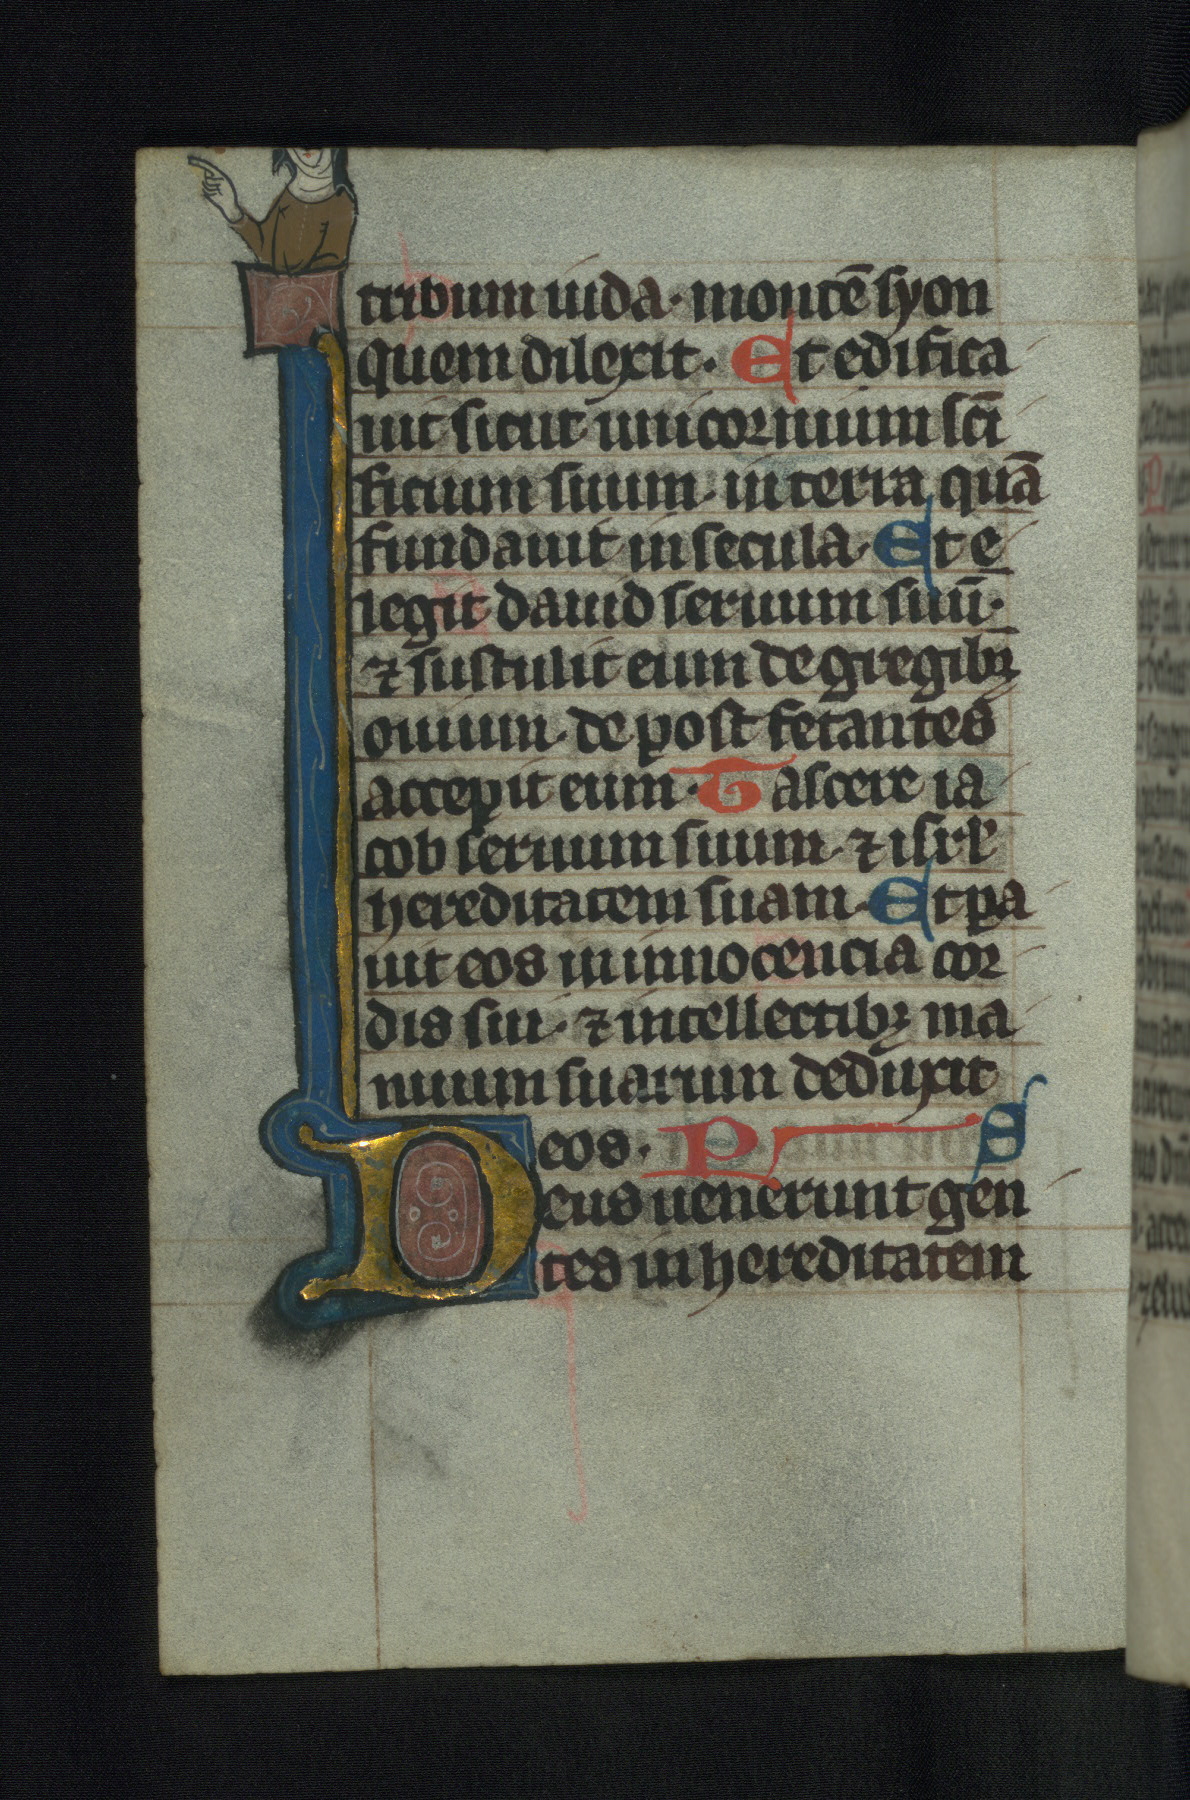 tribum iuda· montē syon
quem dilexit· Et edifica
uit sicut unicornium sc̄i
ficium suum· in terra quā
fundauit in secula· Et e
legit dauid seruum suū·
⁊ sustulit eum de gregibꝫ
ouium· de post fetantes
accepit eum· Pascere ia
cob seruum suum· ⁊ isr̄l
hereditatem suam· Et pa
uit eos in innocencia cor
dis sui· ⁊ intellectibꝫ ma
nuum suarum deduxit
eos· PS
Deus uenerunt gen
tes in hereditatem